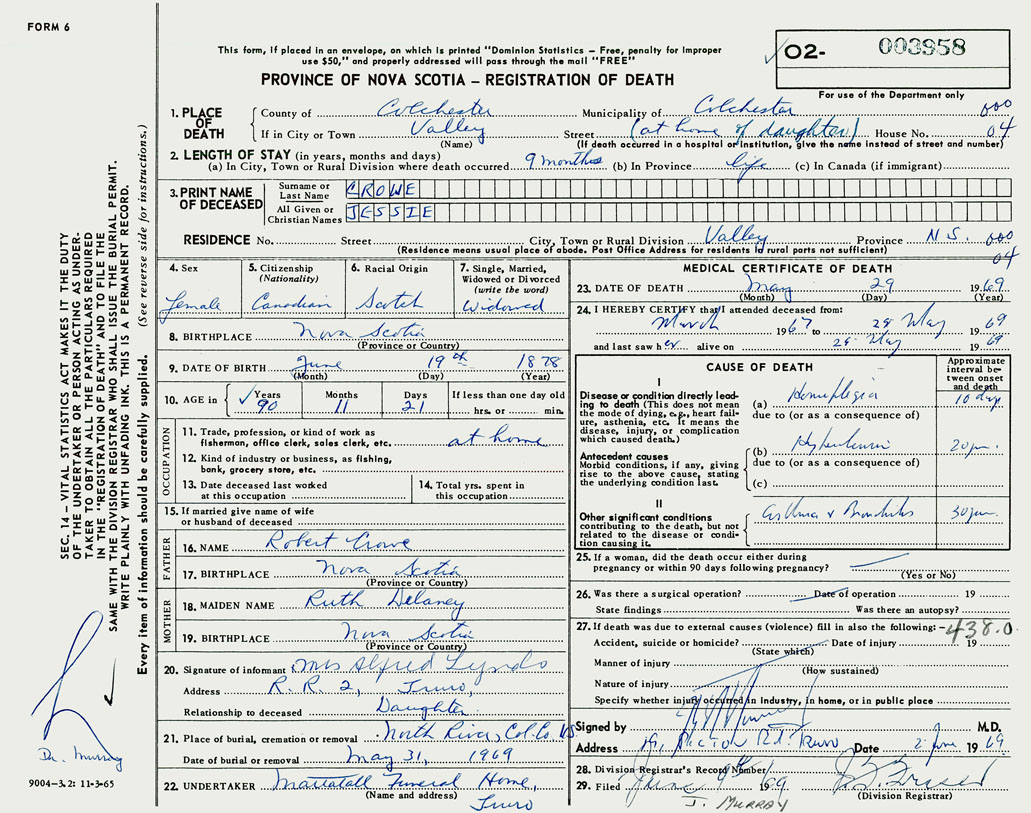 FORM 6
This form, if placed in an envelope, on which is printed "Dominion Statistics – Free, penalty for improper
use $50," and properly addressed will pass through the mail "FREE"
PROVINCE OF NOVA SCOTIA – REGISTRATION OF DEATH
O2- 003958
For use of the Department only
1. PLACE OF DEATH
County of Colchester Municipality of Colchester 000
If in City or Town Valley Street (at home of daughter) House No. 04
(Name) (If death occurred in a hospital or institution, give the name instead of street and number)
2. LENGTH OF STAY (in years, months and days)
(a) In City, Town or Rural Division where death occurred 9 months (b) In Province life (c) In Canada (if immigrant)
3. PRINT NAME OF DECEASED
Surname or Last Name CROWE
All Given or Christian Names JESSIE
RESIDENCE No. Street City, Town or Rural Division Valley Province N.S. 000
(Residence means usual place of abode. Post Office Address for residents in rural parts not sufficient) 04
4. Sex
female
5. Citizenship
(Nationality)
Canadian
6. Racial Origin
Scotch
7. Single, Married,
Widowed or Divorced
(write the word)
Widowed
8. BIRTHPLACE Nova Scotia
(Province or Country)
9. DATE OF BIRTH June 19th 1878
(Month) (Day) (Year)
10. AGE in Years Months Days If less than one day old
90 11 21 hrs. or min.
OCCUPATION
11. Trade, profession, or kind of work as
fisherman, office clerk, sales clerk, etc. at home
12. Kind of industry or business, as fishing,
bank, grocery store, etc.
13. Date deceased last worked
at this occupation
14. Total yrs. spent in
this occupation
15. If married give name of wife
or husband of deceased
FATHER
16. NAME Robert Crowe
17. BIRTHPLACE Nova Scotia
(Province or Country)
MOTHER
18. MAIDEN NAME Ruth Delaney
19. BIRTHPLACE Nova Scotia
(Province or Country)
20. Signature of informant Mrs Alfred Lynds
Address R. R. 2, Truro,
Relationship to deceased Daughter
21. Place of burial, cremation or removal North River, Col. Co. NS.
Date of burial or removal May 31, 1969
22. UNDERTAKER Mattatall Funeral Home,
(Name and address) Truro
MEDICAL CERTIFICATE OF DEATH
23. DATE OF DEATH May 29 1969
(Month) (Day) (Year)
24. I HEREBY CERTIFY that I attended deceased from:
March 1967 to 28 May 1969
and last saw her alive on 28 May 1969
CAUSE OF DEATH
Approximate
interval be-
tween onset
and death
I
Disease or condition directly lead-
ing to death (This does not mean
the mode of dying, e.g., heart fail-
ure, asthenia, etc. It means the
disease, injury, or complication
which caused death.)
(a) Hemiplegia 10 days
due to (or as a consequence of)
Antecedent causes
Morbid conditions, if any, giving
rise to the above cause, stating
the underlying condition last.
(b) Hypertension 20 yrs.
due to (or as a consequence of)
(c)
II
Other significant conditions
contributing to the death, but not
related to the disease or condi-
tion causing it.
Asthma & Bronchitis 30 yrs.
25. If a woman, did the death occur either during
pregnancy or within 90 days following pregnancy?
(Yes or No)
26. Was there a surgical operation? Date of operation 19
State findings Was there an autopsy?
27. If death was due to external causes (violence) fill in also the following: -438.0
Accident, suicide or homicide? Date of injury 19
(State which)
Manner of injury
(How sustained)
Nature of injury
Specify whether injury occurred in industry, in home, or in public place
Signed by M.D.
Address Truro Date 2 June 1969
28. Division Registrar's Record Number
29. Filed June 9th 1969
(Division Registrar)
J. MURRAY
SEC. 14 – VITAL STATISTICS ACT MAKES IT THE DUTY
OF THE UNDERTAKER OR PERSON ACTING AS UNDER-
TAKER TO OBTAIN ALL THE PARTICULARS REQUIRED
IN THE "REGISTRATION OF DEATH" AND TO FILE THE
SAME WITH THE DIVISION REGISTRAR WHO SHALL ISSUE THE BURIAL PERMIT.
WRITE PLAINLY WITH UNFADING INK. THIS IS A PERMANENT RECORD.
Every item of information should be carefully supplied. (See reverse side for instructions.)
Dr. Murray
9004-3.2: 11-3-65